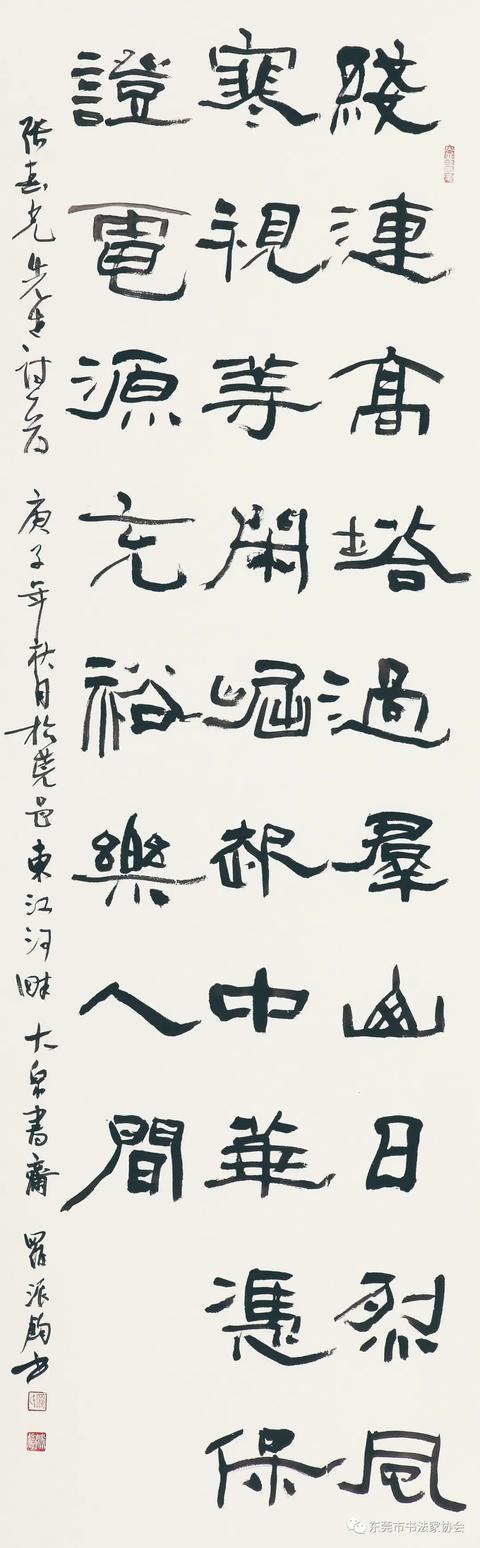 綫連高塔過羣山日烈風
寒視等閑崛起中華憑保
證電源充裕樂人間
張光先生诗一首 庚子年秋日於莞邑東江河畔 大泉書齋 羅派鈞书
东莞市书法家协会